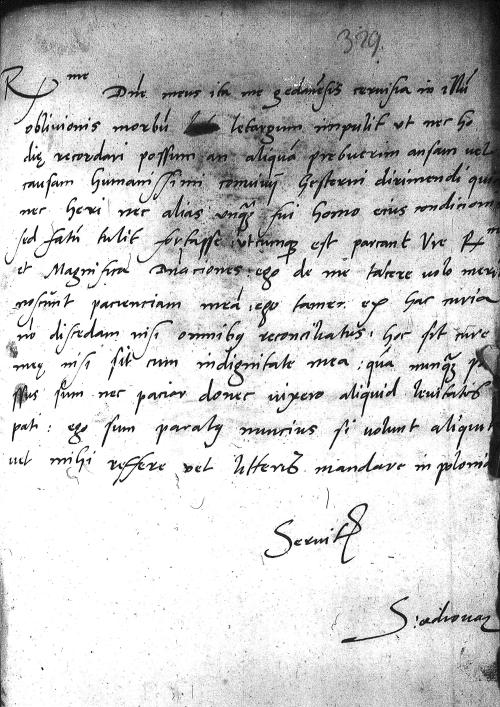 329.
R me Dne meus ita me gedanesis cervisia in illu
oblivionis morbu letargum impulit ut nec ho
die recordari possum an aliqua prebuerim ansam vel
causam humanissimi convivij hesterni dirimendi qui
nec heri nec alias unq fui homo eius condicionis
sed fatu tulit fortasse utcumq est parcant Vre Rme
et Magnifica Dnaciones ego de me tacere volo meri
noscunt pacienciam mea ego tamen ex hac curia
no discedam nisi omnibq reconciliatus hoc sit cure
meq nisi sit cum indignitate mea : qua nunq pa
ssus sum nec pacior donec vixero aliquid levitatis
pati : ego sum paratq nuncius si volunt aliquit
vel mihi reffere vel litteris mandare in polonia
Servit